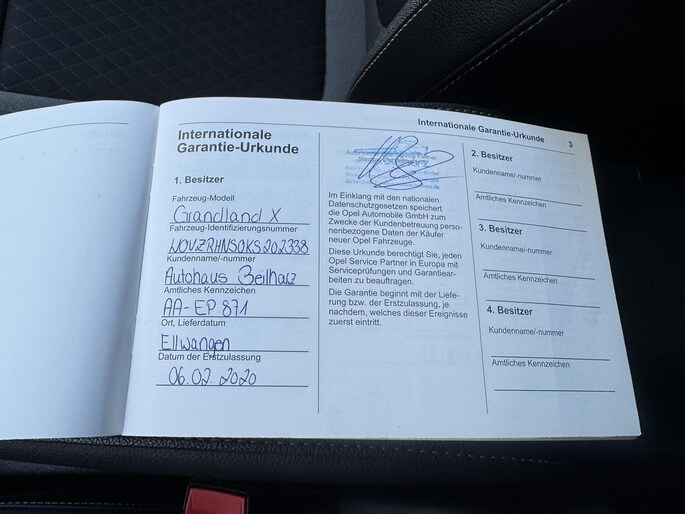 Internationale Garantie-Urkunde 3
Internationale
Garantie-Urkunde
1. Besitzer
Fahrzeug-Modell
Grandland X
Fahrzeug-Identifizierungsnummer
WOVZRHNSOKS202338
Kundenname/-nummer
Autohaus Beilharz
Amtliches Kennzeichen
AA-EP 871
Ort, Lieferdatum
Ellwangen
Datum der Erstzulassung
06.02.2020
Im Einklang mit den nationalen
Datenschutzgesetzen speichert
die Opel Automobile GmbH zum
Zwecke der Kundenbetreuung perso-
nenbezogene Daten der Käufer
neuer Opel Fahrzeuge.
Diese Urkunde berechtigt Sie, jeden
Opel Service Partner in Europa mit
Serviceprüfungen und Garantiear-
beiten zu beauftragen.
Die Garantie beginnt mit der Liefe-
rung bzw. der Erstzulassung, je
nachdem, welches dieser Ereignisse
zuerst eintritt.
2. Besitzer
Kundenname/-nummer
Amtliches Kennzeichen
3. Besitzer
Kundenname/-nummer
Amtliches Kennzeichen
4. Besitzer
Kundenname/-nummer
Amtliches Kennzeichen